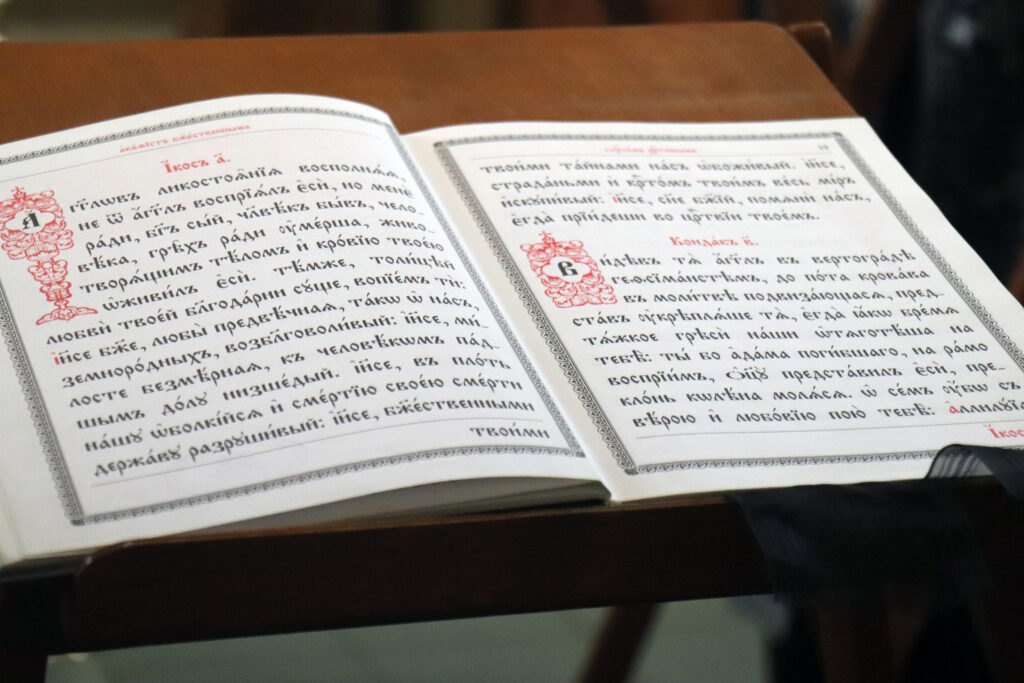 акаѳїстъ бж҃ественнымъ
І҆́косъ а҃.
А҆́гг҃лѡвъ ликостоѧ̑нїѧ восполнѧ́ѧ,
не ѿ а҆́гг҃лъ воспрїѧ́лъ є҆сѝ, но менє̀
ра́ди, бг҃ъ сы́й, чл҃вѣ́къ бы́въ, чело-
вѣ́ка, грѣ̑хъ ра́ди ᲂу҆ме́рша, живо-
творѧ́щимъ тѣ́ломъ и҆ кро́вїю твое́ю
ѡ҆живи́лъ є҆сѝ. тѣ́мже, толи́цѣй
любвѝ твое́й бл҃года́рни сꙋ́ще, вопїе́мъ тѝ:
і҆и҃се бж҃е, любы̀ предвѣ́чнаѧ, та́кѡ ѡ҆ на́съ
земноро́дныхъ, возбл҃говоли́вый: і҆и҃се, ми́-
лосте безмѣ́рнаѧ, къ человѣ́кѡмъ па́д-
шымъ до́лꙋ низше́дый. і҆и҃се, въ пло́ть
на́шꙋ ѡ҆болкі́йсѧ и҆ сме́ртїю свое́ю сме́ртн
держа́вꙋ разрꙋши́вый: і҆и҃се, бж҃е́ственными
твои́ми
твои́ми та́йнами на́съ ѡ҆божи́вый. і҆и҃се,
страда́ньми и҆ крⷭ҇то́мъ твои́мъ ве́сь мі́ръ
и҆скꙋпи́вый: і҆и҃се, сн҃е бж҃їй, помѧнѝ на́съ,
є҆гда̀ прїи́деши во црⷭ҇твїи твое́мъ.
Конда́къ в҃.
Ви́дѣвъ тѧ̀ а҆́гг҃лъ въ вертогра́дѣ
геѳсима́нстѣмъ, до по́та крова́ва
въ моли́твѣ подвиза́ющасѧ, пред-
ста́въ ᲂу҆крѣплѧ́ше тѧ̀, є҆гда̀ ꙗ҆́кѡ бре́мѧ
тѧ́жкое грѣсѝ на́ши ѡ҆тѧготѣ́ша на
тебѣ̀: ты́ бо а҆да́ма поги́бшаго, на ра́мо
воспрїи́мъ, ѻ҆ц҃ꙋ̀ предста́вилъ є҆сѝ, пре-
кло́нь кѡлѣ̑на молѧ́сѧ. ѡ҆ се́мъ ᲂу҆́бѡ съ
вѣ́рою и҆ любо́вїю пою̀ тебѣ̀: а҆ллилꙋ́їа
І҆́косъ